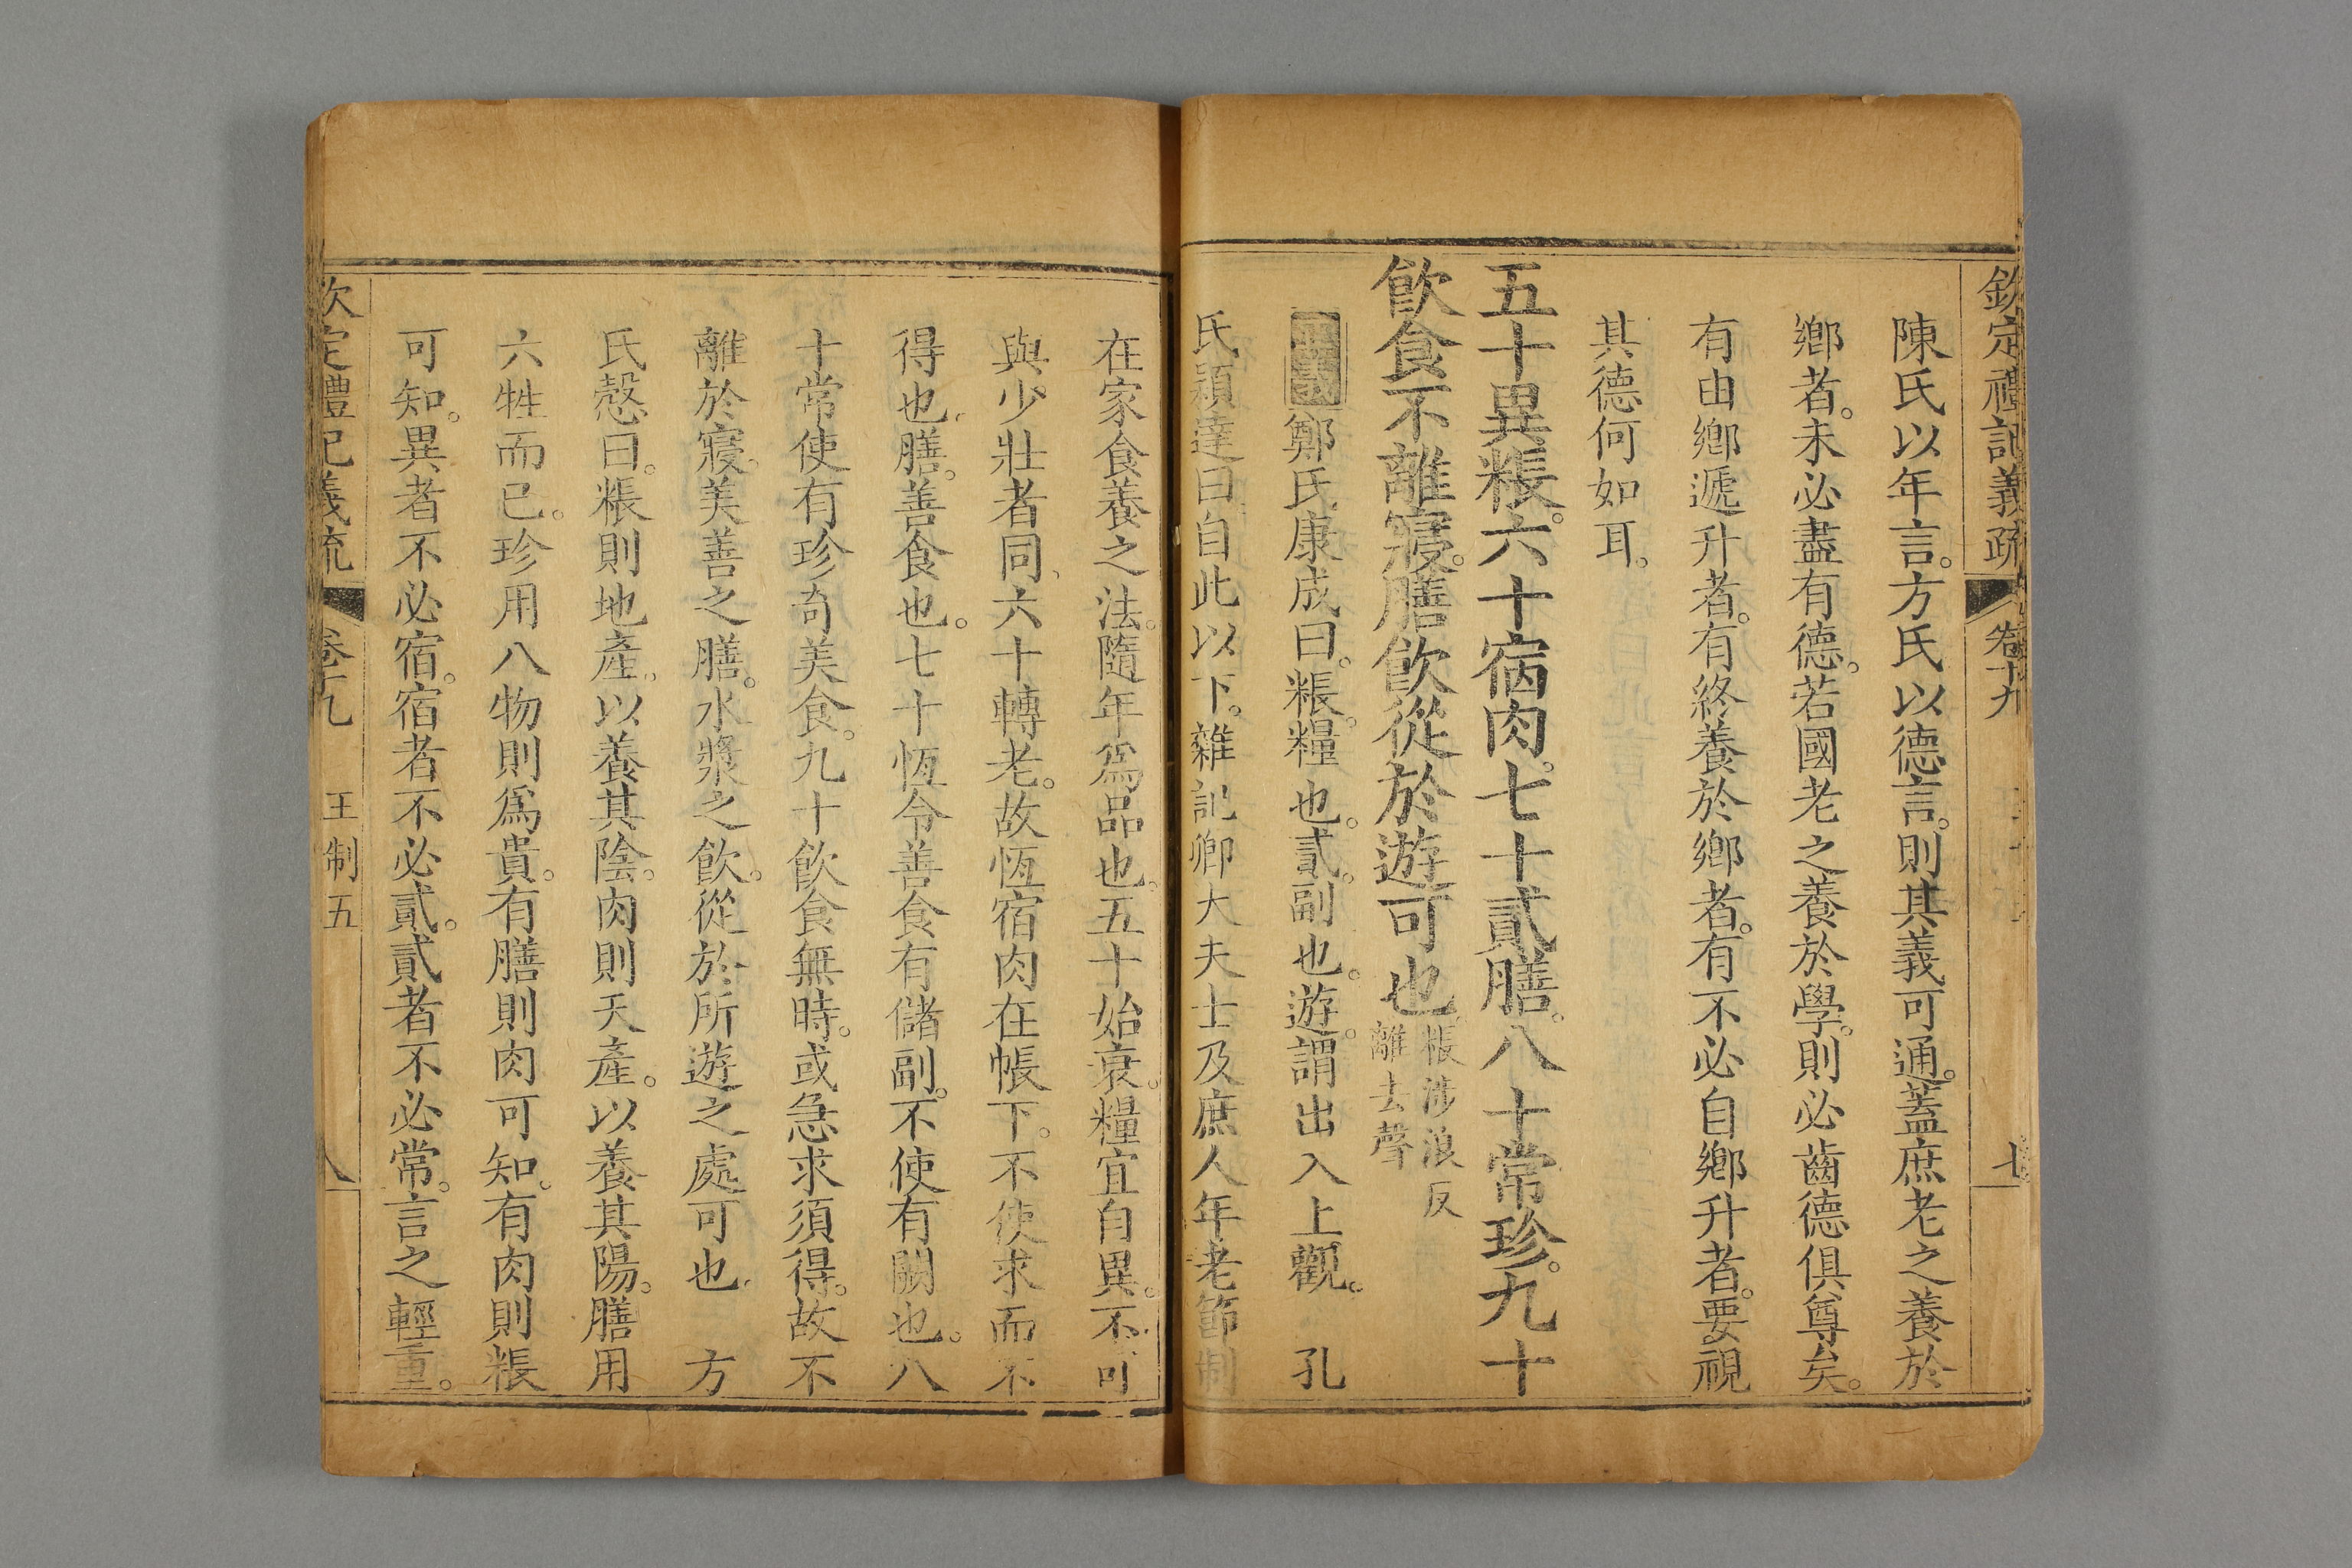 欽定禮記義疏 卷十九 七
陳氏以年言。方氏以德言。則其義可通。蓋庶老之養於
鄉者。未必盡有德。若國老之養於學。則必齒德俱尊矣。
有由鄉遞升者。有終養於鄉者。有不必自鄉升者。要視
其德何如耳。
五十異粻。六十宿肉。七十貳膳。八十常珍。九十
飲食不離寢。膳飲從於遊可也。
粻涉浪反
離去聲
正義鄭氏康成曰。粻。糧也。貳。副也。遊。謂出入上觀。 孔
氏穎達曰自此以下。雜記卿大夫士及庶人年老節制
在家食養之法。隨年爲品也。五十始衰。糧宜自異。不可
與少壯者同、六十轉老。故恆宿肉在帳下。不使求而不
得也。膳。善食也。七十恆令善食有儲副。不使有闕也。八
十常使有珍奇美食。九十飲食無時。或急求須得。故不
離於寢。美善之膳。水漿之飲。從於所遊之處可也。 方
氏慤曰。粻則地產。以養其陰。肉則天產。以養其陽。膳用
六牲而已。珍用八物則爲貴。有膳則肉可知。有肉則粻
可知。異者不必宿。宿者不必貳。貳者不必常。言之輕重。
欽定禮記義疏 卷十九 王制五 八